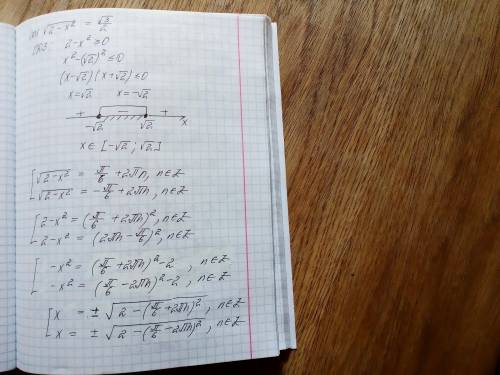 cos √(2-x²) = √3/2
ОДЗ: 2-x² ≥ 0
x² - (√2)² ≤ 0
(x-√2)(x+√2) ≤ 0
x = √2   x = -√2
+ − +
-√2 √2 x
x ∈ [-√2; √2]
[ √(2-x²) = π/6 + 2πn, n∈Z
√(2-x²) = -π/6 + 2πn, n∈Z
[ 2-x² = (π/6 + 2πn)², n∈Z
2-x² = (2πn - π/6)², n∈Z
[ -x² = (π/6 + 2πn)² - 2, n∈Z
-x² = (π/6 - 2πn)² - 2, n∈Z
[ x = ± √(2-(π/6 + 2πn)²), n∈Z
x = ± √(2-(π/6 - 2πn)²), n∈Z